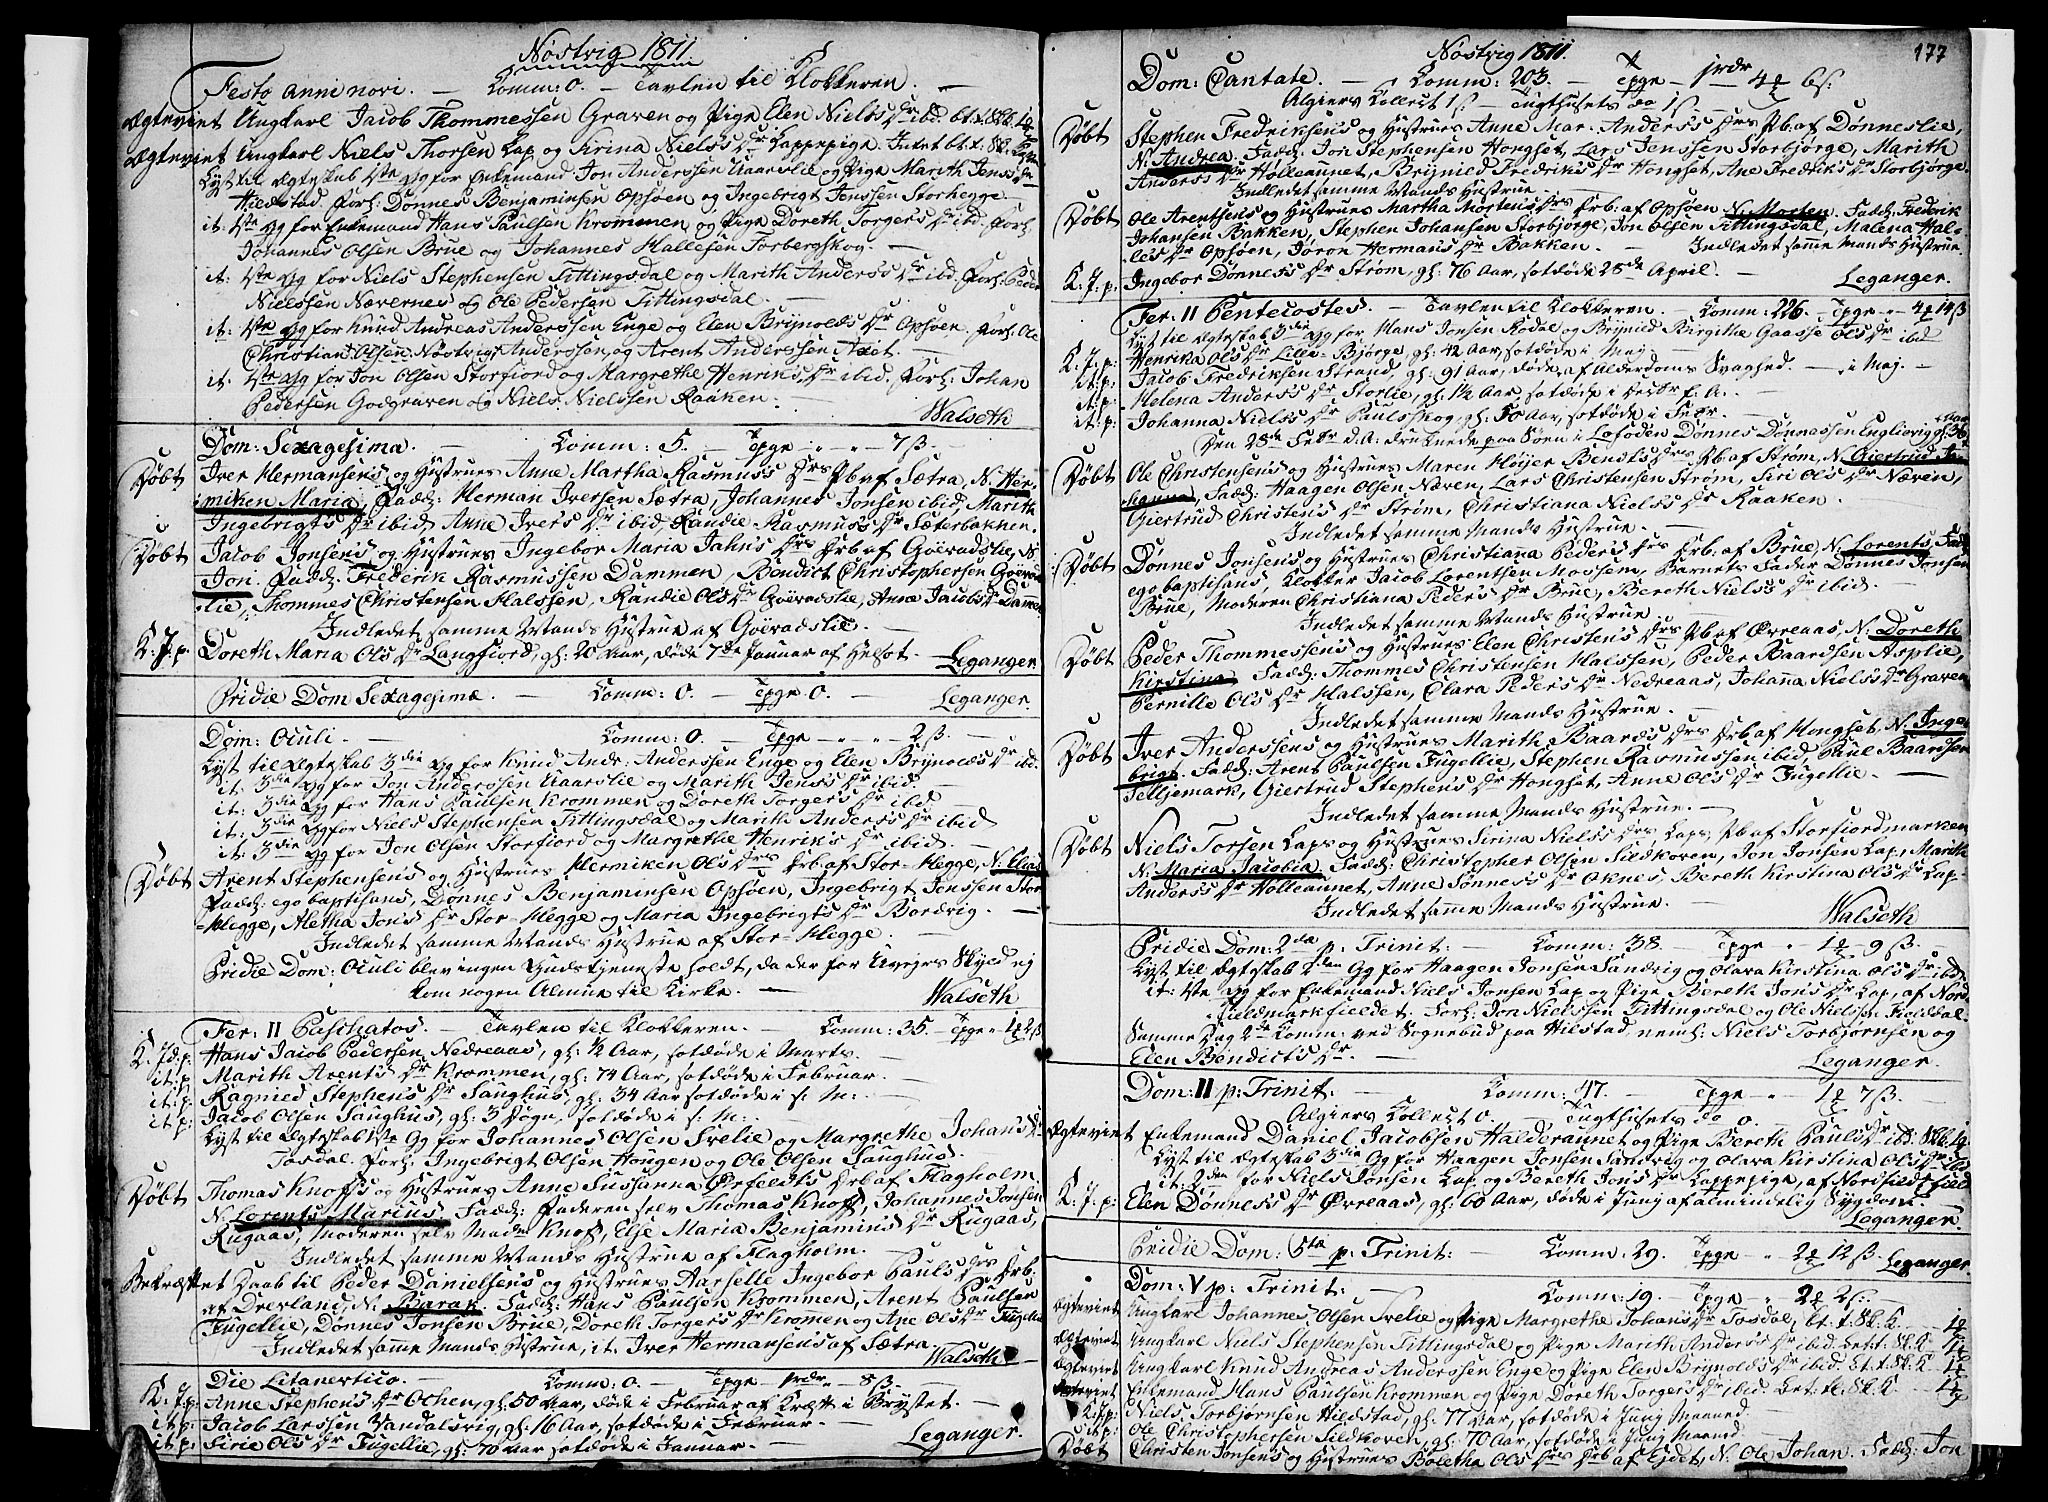 Nøstvig 1811.
Festo anni novi. — Comm: 0. — Tavlen til Klokkeren. —
Ægteviet Ungkarl Jacob Thommessen Graven og Pige Elen Niels Dr ibd. bt. t.
Ægteviet Ungkarl Niels Thorsen Lap og Sirina Nielss Dr Lappepige. Intet bt. t.
Lyst til Ægteskab 1ste Gg for Enkemand Jon Anderssen Aaarslie og Pige Marith Jens Dr
Hildstad. Forl: Dønnes Benjaminsen Opsøen og Ingebrigt Jenssen Storhegge.
it: 1ste Gg for Enkemand Hans Paulsen Krommen og Pige Doreth Torgers Dr ibid. Forl:
Johannes Olsen Brue og Johannes Hallesen Torbergskog. —
it: 1ste Gg for Niels Stephensen Tittingsdal og Marith Anderss Dr ibid. Forl: Peder
Nielssen Nævernes og Ole Pedersen Tittingsdal. —
it: 1ste Gg for Knud Andreas Anderssen Enge og Elen Brynolds Dr Opsøen. Forl: Ole
Christian Olsen Nøstvig Anderssen, og Arent Anderssen Axet. —
it: 1ste Gg for Jon Olsen Storfiord og Margrethe Henriks Dr ibid. Forl: Johan
Pedersen Godgraven og Niels Nielssen Raaken. — Walseth
Dom: Sexagesima. — Comm: 5. — Tpge " " — 7 ß. —
Døbt Iver Hermansens og Hustrues Anne Martha Rasmuss Drs Pb. af Sætra, N. Her-
miken Maria. Fadd: Herman Iversen Sætra, Johannes Jonsen ibid, Marith
Ingebrigts Dr ibid, Anne Ivers Dr ibid, Randie Rasmuss Dr Sæterbakken.
Døbt Jacob Jonsens og Hustrues Ingebor Maria Jahns Drs Drb af Goëvadslie, N.
Jon. Fadd: Frederik Rasmussen Dammen, Bendict Christophersen Goëvad-
slie, Thommes Christensen Halssen, Randie Ols Dr Goëvadslie, Anne Jacobs Dr Dammen
Indledet samme Mands Hustrue af Goëvadslie. —
K. J. p. Doreth Maria Ols Dr Langfiord, gl: 20 Aar, døde 7de Januar af Helsot. — Leganger.
Pridie Dom Sexagesimæ — Comm: 0. — Tpge 0. — Leganger.
Dom: Oculi. — Comm: 0. — Tpge — " " — 2 ß. —
Lyst til Ægteskab 3die Gg for Knud Andr: Anderssen Enge og Elen Brynolds Dr ibd.
it: 3die Gg for Jon Anderssen Aaarslie og Marith Jens Dr ibid.
it: 3die Gg for Hans Paulsen Krommen og Doreth Torgers Dr ibid. —
it: 3die Gg for Niels Stephensen Tittingsdal og Marith Anderss Dr ibid
it: 3die Gg for Jon Olsen Storfiord og Margrethe Henriks Dr ibid.
Døbt Arent Stephensens og Hustrues Hermiken Ols Drs Drb. af Stor-Hegge, N: Elias
Fadd: ego baptisans, Dønnes Benjaminsen Opsøen, Ingebrigt Jenssen Stor-
Hegge, Aletha Jons Dr Stor-Hegge og Maria Ingebrigts Dr Bordvig. —
Indledet samme Mands Hustrue af Stor-Hegge. —
Pridie Dom: Oculi blev ingen Gudstjeneste holdt, da der for Uveyrs Skyld ej
kom nogen Almue til Kirke. — Walseth
Fer: II Paschatos. — Tavlen til Klokkeren. — Comm: 35. — Tpge " 1 2 ß
K. Jd. p. Hans Jacob Pedersen Nedreaas, gl: 1/2 Aar, sotdøde i Marts. —
it: p. Marith Arents Dr Krommen, gl: 74 Aar, sotdøde i Februar. —
it: p. Ragnild Stephens Dr Saughus, gl: 34 Aar sotdøde i s: M: —
it p: Jacob Olsen Saughus, gl: 3 Døgn, sotdøde i s: M: —
Lyst til Ægteskab 1ste Gg for Johannes Olsen Svelie og Margrethe Johans Dr
Tosdal. Forl: Ingebrigt Olsen Hougen og Ole Olsen Saughus.
Døbt Thomas Knoffs og Hustrues Anne Susanna Orfeldts Drb af Flagholm.
N: Lorents Marius. Fadd: Faderen selv Thomas Knoff, Johannes Jonsen
Rugaas, Moderen selv Madm Knoff, Else Maria Benjamins Dr Rugaas,
Indledet samme Mands Hustrue af Flagholm. —
Bekræftet Daab til Peder Danielsens og Hustrues Aarselle Ingebor Pauls Drs Drb.
af Drevland, N: Barak. Fadd: Hans Paulsen Krommen, Arent Paulsen
Fugellie, Dønnes Jonsen Brue, Doreth Torgers Dr Krommen og Ane Ols Dr Fugellie
Indledet samme Mands Hustrue, it. Iver Hermansens af Sætra. — Walseth
Die Litanevtico. — Comm: 0. — Tpge — prdr — 8 ß. —
K. J. p: Anne Stephens Dr Ochen, gl: 50 Aar, døde i Februar af Kræft i Brystet. —
it: p: Jacob Larssen Vandalsvig, gl: 16 Aar, sotdøde i Februar. —
it p: Sirie Ols Dr Fugellie, gl: 70 Aar sotdøde i Januar. — Leganger.
Nøstvig 1811. 177
Dom: Cantate. — Comm: 203. — Tpge — prdr 4 6 ß.
Algiers Collect 1 ß — Tugthusets do 1 ß —
Døbt Stephen Fredriksens og Hustrues Anne Mar: Anderss Drs Pb. af Dønneslie,
N. Andrea. Fadd: Jon Stephensen Hongset, Lars Jenssen Storbjørge, Marith
Anderss Dr Holleaunet, Brynild Fredriks Dr Hongset, Ane Fredriks Dr Storbjørge.
Indledet samme Mands Hustrue. —
Døbt Ole Arentsens og Hustrues Martha Mortens Drs Drb. af Opsøen N: Morten. Fadd: Frederik
Johansen Bakken, Stephen Johansen Storbjørge, Jon Olsen Tittingsdal, Malena Hal-
les Dr Opsøen, Jøron Hermans Dr Bakken. — Indledet samme Mands Hustrue.
K. J. p: Ingebor Dønness Dr Strøm, gl: 76 Aar, sotdøde 28de April. — Leganger.
Fer: II Pentecostes. — Tavlen til Klokkeren. — Comm: 226. — Tpge " 4 14 ß
Lyst til Ægteskab 3die Gg for Hans Jonsen Rødal og Brynild Birgithe Gaasse Ols Dr ibid
K. J. p: Henrika Ols Dr Lille-Bjørge, gl: 42 Aar, sotdøde i Maj. —
it. p: Jacob Fredriksen Strand, gl: 91 Aar, døde af Alderdoms Svaghed. — i Maj. —
it. p: Helena Anderss Dr Storlie, gl: 1 1/2 Aar, sotdøde i Decbr f. A. —
it: p: Johanna Nielss Dr Paulsskog, gl: 50 Aar, sotdøde i Febr. —
Den 28de Febr d. A: druknede paa Søen i Lofoden Dønnes Dønnessen Englievig gl: 36 Aar
Døbt Ole Christensens og Hustrues Maren Høyer Bendts Drs Pb af Strøm, N. Giertrud Jo-
hanna. Fadd: Haagen Olsen Næven, Lars Christensen Strøm, Siri Ols Dr Næven,
Giertrud Christens Dr Strøm, Christiana Nielss Dr Raaken. —
Indledet samme Mands Hustrue. —
Døbt Dønnes Jonsens og Hustrues Christiana Peders Drs Drb: af Brue, N: Lorents. Fadd:
ego baptisans, Klokker Jacob Lorentsen Mossem, Barnets Fader Dønnes Jonsen
Brue, Moderen Christiana Peders Dr Brue, Bereth Nielss Dr ibid —
Indledet samme Mands Hustrue —
Døbt Peder Thommessens og Hustrues Elen Christens Drs Pb af Øvreaas, N: Doreth
Kirstina. Fadd: Thommes Christensen Halssen, Peder Baardsen Asplie,
Pernille Ols Dr Halssen, Clara Peders Dr Nedreaas, Johanna Niels Dr Graven
Indledet samme Mands Hustrue. —
Døbt Iver Anderssens og Hustrues Marith Baards Drs Drb af Hongset, N. Inge-
brigt. Fadd: Arent Paulsen Fugellie, Stephen Rasmussen ibid, Paul Baardsen
Telljemark, Giertrud Stephens Dr Hongset, Anne Ols Dr Fugellie. —
Indledet samme Mands Hustrue. —
Døbt Niels Torsen Laps og Hustrues Sirina Nielss Drs Laps, Pb af Storfiordmarken
N: Maria Jacobia. Fadd: Christopher Olsen Sildkoven, Jon Jonsen Lap, Marith
Anderss Dr Holleaunet, Anne Sønness Dr Oknes, Bereth Kirstina Ols Dr Lap. —
Indledet samme Mands Hustrue. — Walseth
Pridie Dom: 2da p: Trinit: — Comm: 38. Tpge " 1 — 9 ß. —
Lyst til Ægteskab 2den Gg for Haagen Jonsen Sandvig og Olava Kirstina Ols Dr ibd.
it: 1ste Gg for Enkemand Niels Jonsen Lap og Pige Bereth Jons Dr Lap, af Nord-
Fieldmarkfieldet. Forl: Jon Nielssen Tittingsdal og Ole Nielsen Høiddal.
Samme Dag 2de Comm: ved Sognebud paa Hilstad, neml: Niels Torbjørnsen og
Elen Bendicts Dr. — Leganger.
Dom: II p: Trinit. — Comm: 47. — Tpge — " 1 7 ß. —
Algiers Collect 0. — Tugthusets do 0. —
Ægteviet Enkemand Daniel Jacobsen Halderaunet og Pige Bereth Pauls Dr ibd:
Lyst til Ægteskab 3die Gg for Haagen Jonsen Sandvig og Olava Kirstina Ols Dr ibd
it: 2den for Niels Jonsen Lap og Bereth Jons Dr Lappepige, af Nordfieldsfield
K. J. p: Elen Dønness Dr Øvreaas, gl: 60 Aar, døde i Juny af almindelig Sygdom. —
Leganger.
Pridie Dom: 5ta p: Trinit: — Comm: 29. Tpge " 2 12 ß. Leganger.
Dom: V p: Trinit: — Comm: 19. — Tpge — " 2 2 ß: —
Ægteviet Ungkarl Johannes Olsen Svelie og Pige Margrethe Johans Dr Tosdal, bt. t: Sk. K —
Ægteviet Ungkarl Niels Stephensen Tittingsdal og Pige Marith Anderss Dr ibid. bet. t: Sk. K —
Ægteviet Ungkarl Knud Andreas Anderssen Enge og Pige Elen Brynolds Dr ibid. bt. t: Sk. K —
Ægteviet Enkemand Hans Paulsen Krommen og Pige Doreth Torgers Dr ibid bet. t: Sk. K. —
K. J. p: Niels Torbjørnsen Hildstad, gl: 77 Aar, sotdøde i Juny Maaned
it p: Ole Christophersen Sildkoven, gl: 70 Aar, sotdøde i Juny Maaned
Døbt Christen Jonsens og Hustrues Boletha Ols Drs Drb af Ejdet, N: Ole Johan. Fadd: Jon